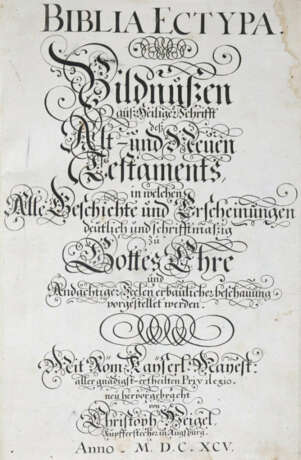 BIBLIA ECTYPA.
Bildnüßen
auß Heiliger Schrifft
deß
Alt- und Neuen
Testaments,
in welchen
Alle Geschichte und Erscheinungen
deutlich und schrifftmäßig
zu
Gottes Ehre
und
Andächtiger Seelen erbaulicher beschauung
vorgestellet werden.
Mit Röm: Kayserl: Mayest:
aller gnädigst-ertheilten Privilegio.
neu hervorgebracht
von
Christoph Weigel,
Kupfferstecher in Augspurg.
Anno. M. D. C. XCV.